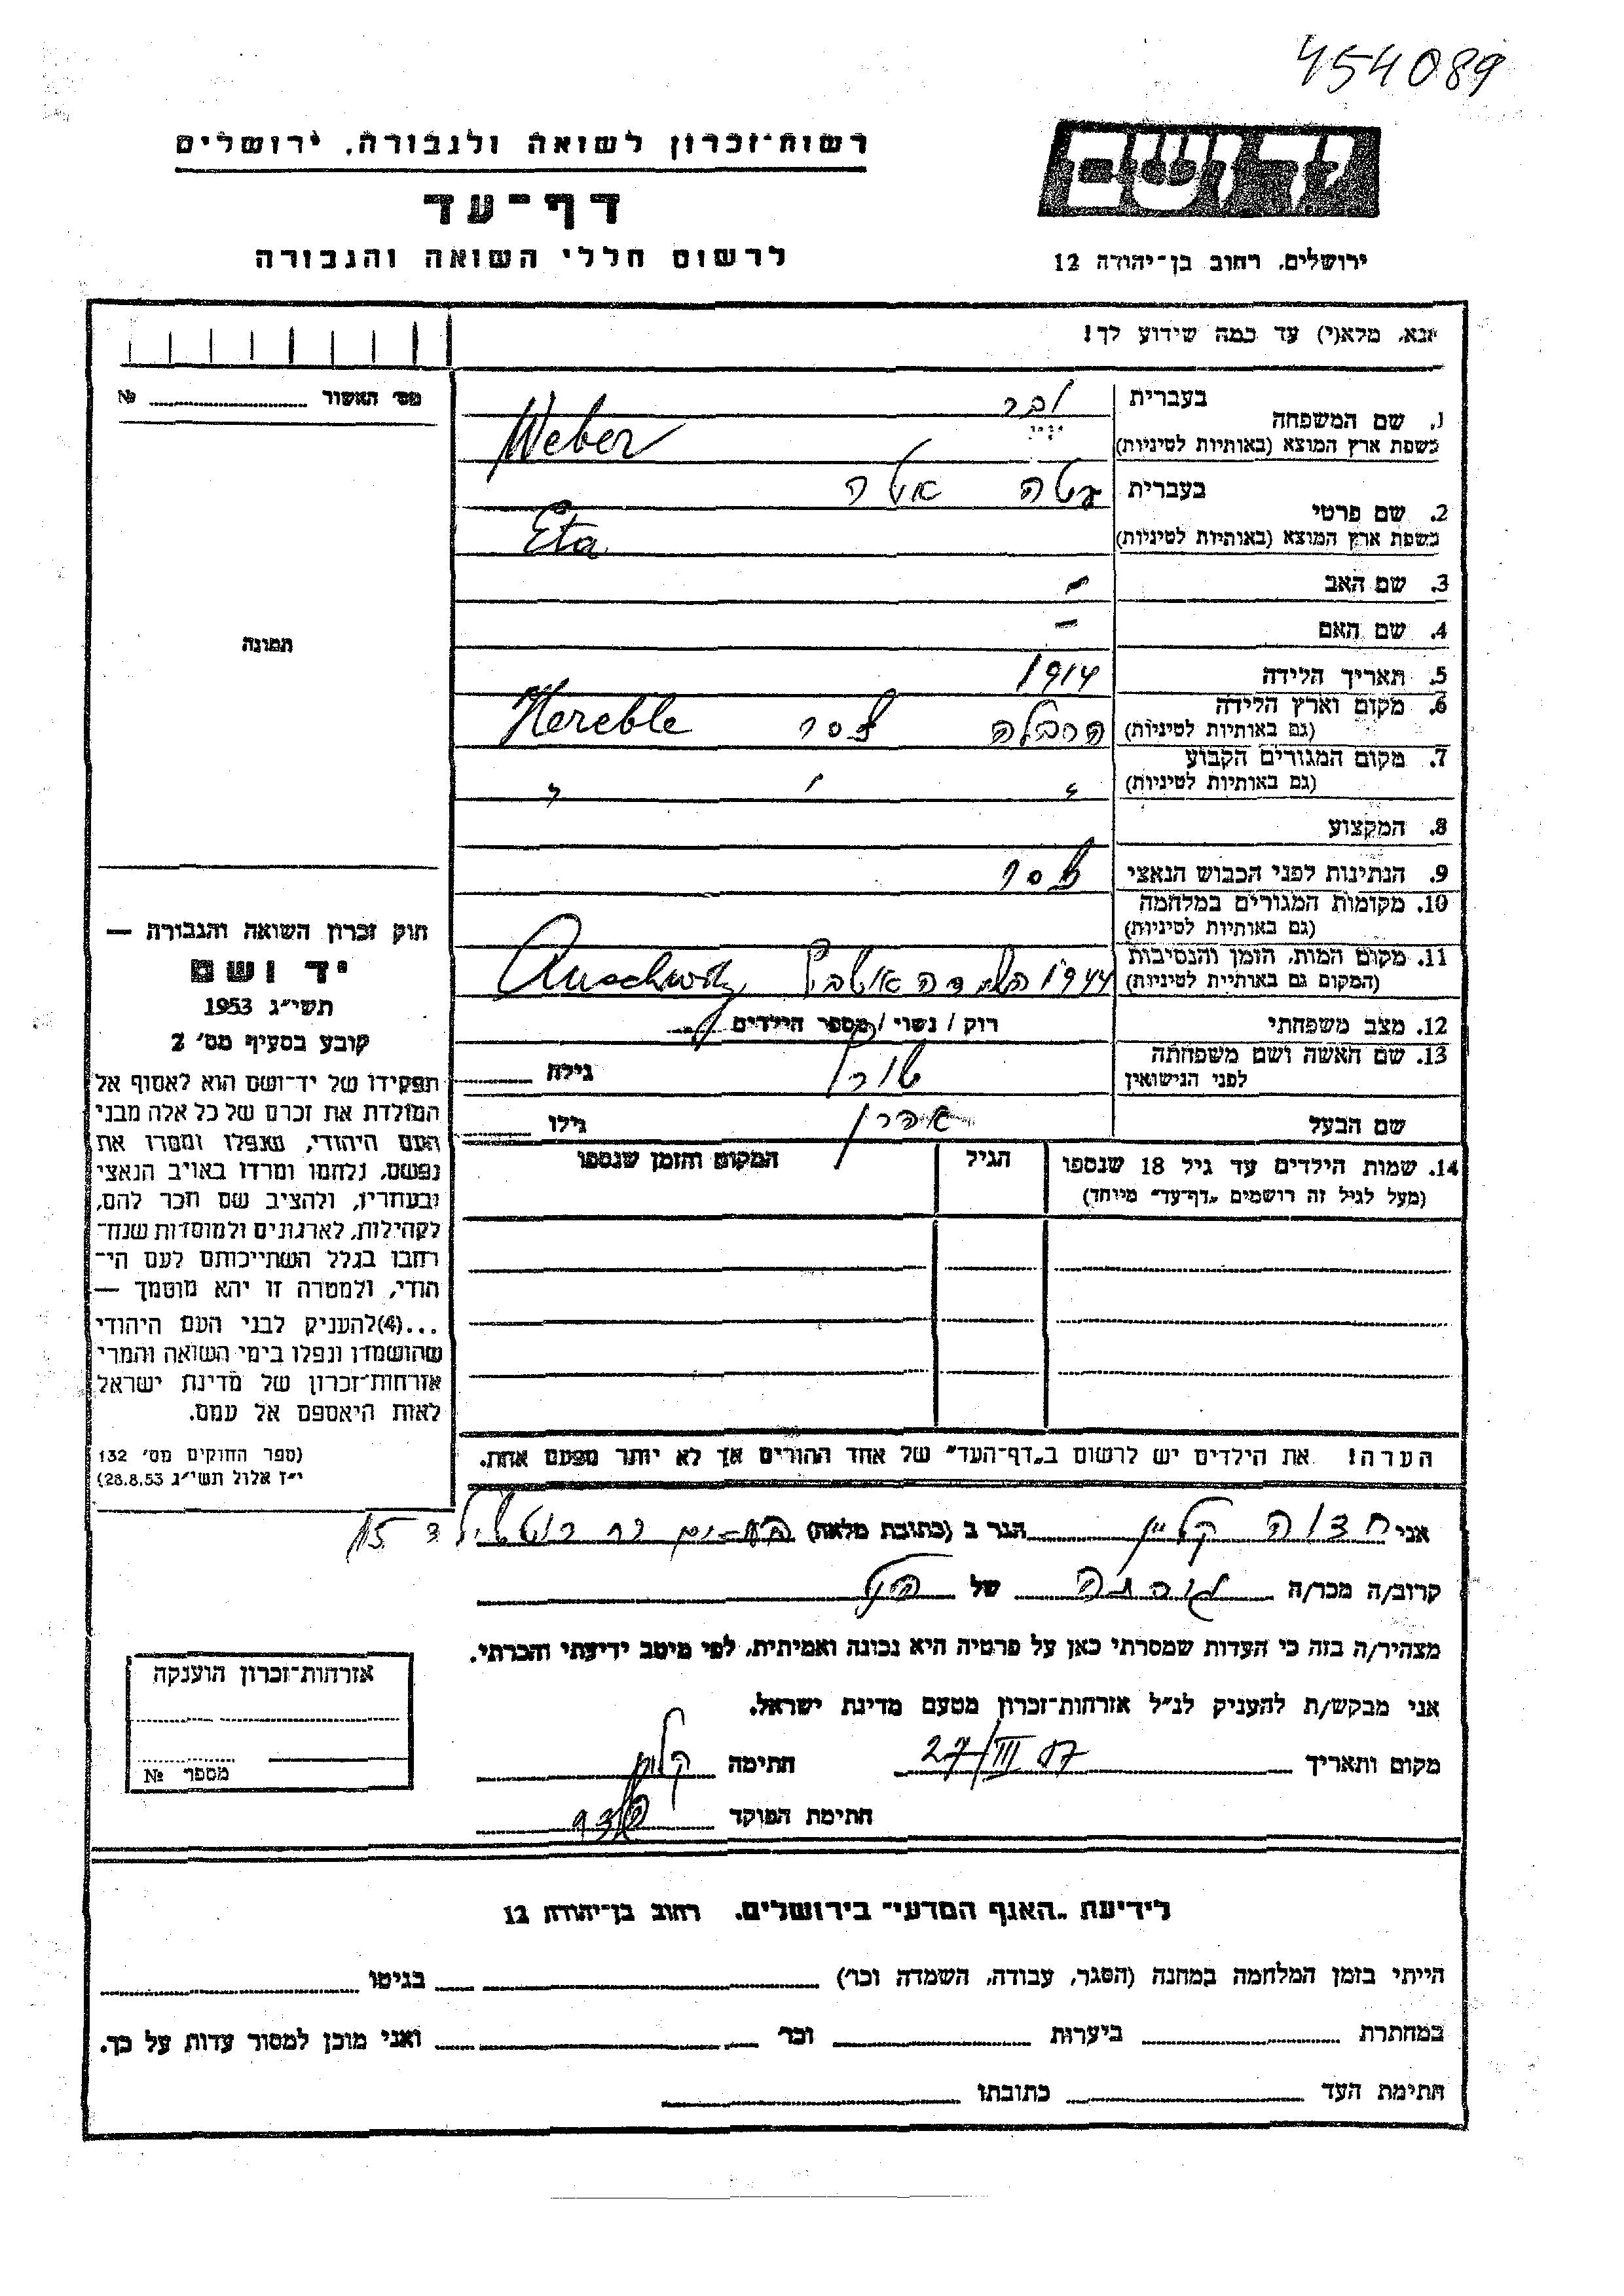 454089
רשות־זכרון לשואה ולגבורה, ירושלים
דף־עד
לרשום חללי השואה והגבורה
ירושלים, רחוב בן־יהודה 12
אנא, מלא(י) עד כמה שידוע לך!
מס׳ האשור № 
1. שם המשפחה
בעברית
ובר
בשפת ארץ המוצא (באותיות לטיניות)
Weber
2. שם פרטי
בעברית
עטה אטה
בשפת ארץ המוצא (באותיות לטיניות)
Eta
3. שם האב –
4. שם האם –
5. תאריך הלידה 1914
6. מקום וארץ הלידה
(גם באותיות לטיניות)
Hereble
7. מקום המגורים הקבוע
(גם באותיות לטיניות)
8. המקצוע
9. הנתינות לפני הכבוש הנאצי
10. מקומות המגורים במלחמה
(גם באותיות לטיניות)
11. מקום המות, הזמן והנסיבות
(המקום גם באותיית לטיניות)
1944 Auschwitz
12. מצב משפחתי רוק / נשוי / מספר הילדים
13. שם האשה ושם משפחתה
לפני הנישואין
גילה
שם הבעל אהרן גילו
14. שמות הילדים עד גיל 18 שנספו
(מעל לגיל זה רושמים „דף־עד״ מיוחד)
הגיל
המקום והזמן שנספו
הערה! את הילדים יש לרשום ב„דף־העד״ של אחד ההורים אך לא יותר מפעם אחת.
תמונה
חוק זכרון השואה והגבורה —
יד ושם
תשי״ג 1953
קובע בסעיף מס׳ 2
תפקידו של יד־ושם הוא לאסוף אל
המולדת את זכרם של כל אלה מבני
העם היהודי, שנפלו ומסרו את
נפשם, נלחמו ומרדו באויב הנאצי
ובעוזריו, ולהציב שם וזכר להם,
לקהילות, לארגונים ולמוסדות שנח־
רחבו בגלל השתייכותם לעם הי־
הודי, ולמטרה זו יהא מוסמך —
...(4)להעניק לבני העם היהודי
שהושמדו ונפלו בימי השואה והמרי
אזרחות־זכרון של מדינת ישראל
לאות היאספם אל עמם.
(ספר החוקים מס׳ 132
י״ז אלול תשי״ג 28.8.53)
אני חדוה קליין הגר ב (כתובת מלאה) 15
קרוב/ה מכר/ה של
מצהיר/ה בזה כי העדות שמסרתי כאן על פרטיה היא נכונה ואמיתית, לפי מיטב ידיעתי והכרתי.
אני מבקש/ת להעניק לנ״ל אזרחות־זכרון מטעם מדינת ישראל.
מקום ותאריך 27/III 57 חתימה
חתימת הפוקד
אזרחות־זכרון הוענקה
מספר №
לידיעת „האגף המדעי״ בירושלים, רחוב בן־יהודה 12
הייתי בזמן המלחמה במחנה (הסגר, עבודה, השמדה וכר׳) בגיטו
במחתרת ביערות וכר׳ ואני מוכן למסור עדות על כך.
חתימת העד כתובתו